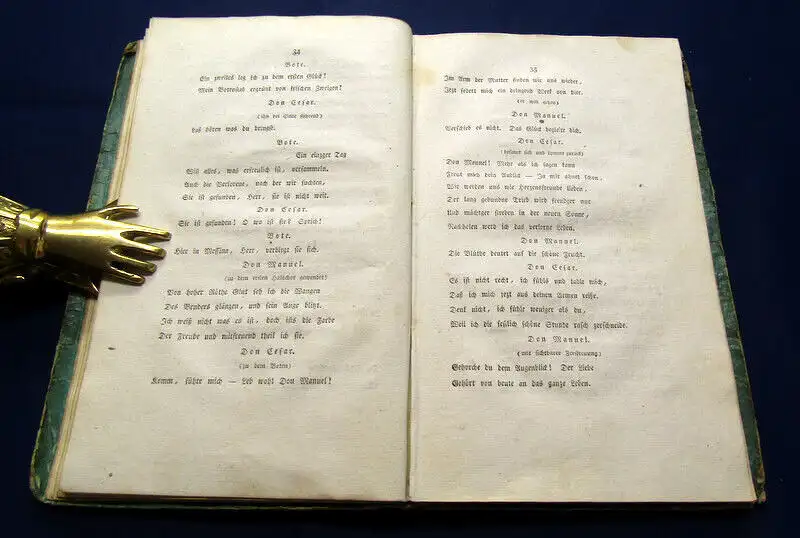 34
Bote.
Ein zweites leg ich zu dem ersten Glück!
Mein Botenstab ergrünt von frischen Zweigen!
Don Cesar.
(ihn bei Seite führend)
Laß hören was du bringst.
Bote.
Ein einzger Tag
Will alles, was erfreulich ist, versammeln.
Auch die Verlorene, nach der wir suchten,
Sie ist gefunden, Herr, sie ist nicht weit.
Don Cesar.
Sie ist gefunden! O wo ist sie? Sprich!
Bote.
Hier in Messina, Herr, verbirgt sie sich.
Don Manuel.
(zu dem ersten Halbchor gewendet)
Von hoher Röthe Glut seh ich die Wangen
Des Bruders glänzen, und sein Auge blitzt.
Ich weiß nicht was es ist, doch ists die Farbe
Der Freude und mitfreuend theil ich sie.
Don Cesar.
(zu dem Boten)
Komm, führe mich — Leb wohl Don Manuel!
35
Im Arm der Mutter finden wir uns wieder,
Jezt fodert mich ein dringend Werk von hier.
(er will gehen)
Don Manuel.
Verschieb es nicht. Das Glück begleite dich.
Don Cesar.
(besinnt sich und kommt zurück)
Don Manuel! Mehr als ich sagen kann
Freut mich dein Anblick — Ja mir ahnet schon,
Wir werden uns wie Herzensfreunde lieben,
Der lang gebundne Trieb wird freudger nur
Und mächtger streben in der neuen Sonne,
Nachholen werd ich das verlorne Leben.
Don Manuel.
Die Blüthe deutet auf die schöne Frucht.
Don Cesar.
Es ist nicht recht, ich fühls und tadle mich,
Daß ich mich jezt aus deinen Armen reiße.
Denk nicht, ich fühle weniger als du,
Weil ich die festlich schöne Stunde rasch zerschneide.
Don Manuel.
(mit sichtbarer Zerstreuung)
Gehorche du dem Augenblick! Der Liebe
Gehört von heute an das ganze Leben.